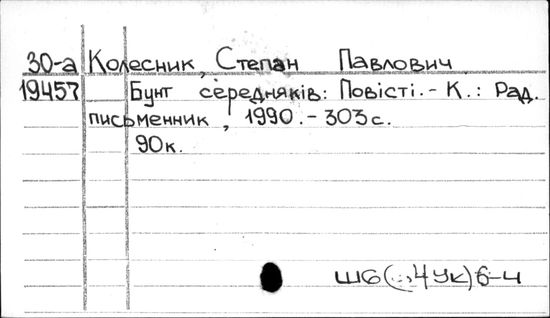 30-а Колесник, Степан Павлович
19457 Бунт середняків: Повісті. - К.: Рад.
письменник, 1990. - 303 с.
90к.
Ш6(...4Ук)6-4